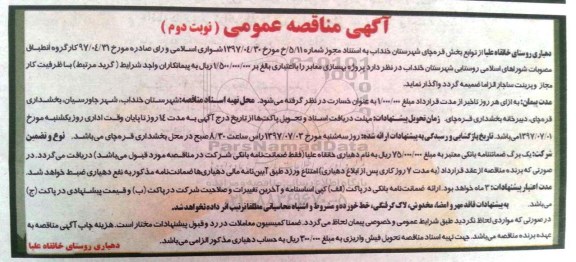 آگهی مناقصه عمومی ( نوبت دوم )
دهیاری روستای خانقاه علیا از توابع بخش قره‌چای شهرستان خنداب به استناد مجوز شماره ۵/۱۱/خ مورخ ۱۳۹۷/۰۴/۳۰ شورای اسلامی و رای صادره مورخ ۹۷/۰۴/۳۱ کارگروه انطباق
مصوبات شوراهای اسلامی روستایی شهرستان خنداب در نظر دارد پروژه بهسازی معابر را با اعتباری بالغ بر ۱/۵۰۰/۰۰۰/۰۰۰ ریال به پیمانکاران واجد شرایط ( گرید مرتبط) با ظرفیت کار
مجاز و پرینت ساجار الزاما ضمیمه گردد واگذار نماید.
مدت پیمان: به ازای هر روز تاخیر از مدت قرارداد مبلغ ۱/۰۰۰/۰۰۰ به عنوان خسارت در نظر گرفته می‌شود. محل تهیه اسناد مناقصه: شهرستان خنداب، شهر جاورسیان، بخشداری
قره‌چای دبیرخانه بخشداری قره‌چای. زمان تحویل پیشنهادات: مهلت دریافت اسناد و تحویل پاکت‌ها از تاریخ درج آگهی به مدت ۱۴ روز تا پایان وقت اداری روز یکشنبه مورخ
۱۳۹۷/۰۷/۰۱ می‌باشد. تاریخ بازگشایی و رسیدگی به پیشنهادات ارائه شده: روز سه‌شنبه مورخ ۱۳۹۷/۰۷/۰۳ راس ساعت ۸/۳۰ صبح در محل بخشداری قره‌چای می‌باشد. نوع و تضمین
شرکت: یک برگ ضمانتنامه بانکی معتبر به مبلغ ۷۵/۰۰۰/۰۰۰ ریال به نام دهیاری خانقاه علیا (فقط ضمانت‌نامه بانکی شرکت در مناقصه مورد قبول می‌باشد) دریافت می‌گردد. در
صورتی که برنده مناقصه از عقد قرارداد (به مدت ۷ روز کاری پس از ابلاغ دهیاری) امتناع ورزد طبق آیین‌نامه مالی دهیاری‌ها ضمانت‌نامه مذکور به نفع دهیاری ضبط خواهد شد.
مدت اعتبار پیشنهادات: ۳ ماه خواهد بود. ارائه ضمانت‌نامه بانکی در پاکت (الف) کپی اساسنامه و آخرین تغییرات و صلاحیت شرکت در پاکت (ب) و قیمت پیشنهادی در پاکت (ج)
می‌باشد. به پیشنهادات فاقد مهر و امضا، مخدوش، لاک گرفتگی، خط خورده و مشروط و اشتباه محاسباتی مطلقا ترتیب اثر داده نخواهد شد.
در صورتی که مواردی لحاظ نگردید طبق شرایط عمومی و خصوصی پیمان لحاظ می‌گردد. ضمنا کمیسیون معاملات در رد و قبول پیشنهادات مختار است. هزینه چاپ آگهی مناقصه به
عهده برنده مناقصه می‌باشد. جهت تهیه اسناد مناقصه تحویل فیش واریزی به مبلغ ۳۰۰/۰۰۰ ریال به حساب دهیاری مذکور الزامی می‌باشد.
دهیاری روستای خانقاه علیا
ParsNamadData